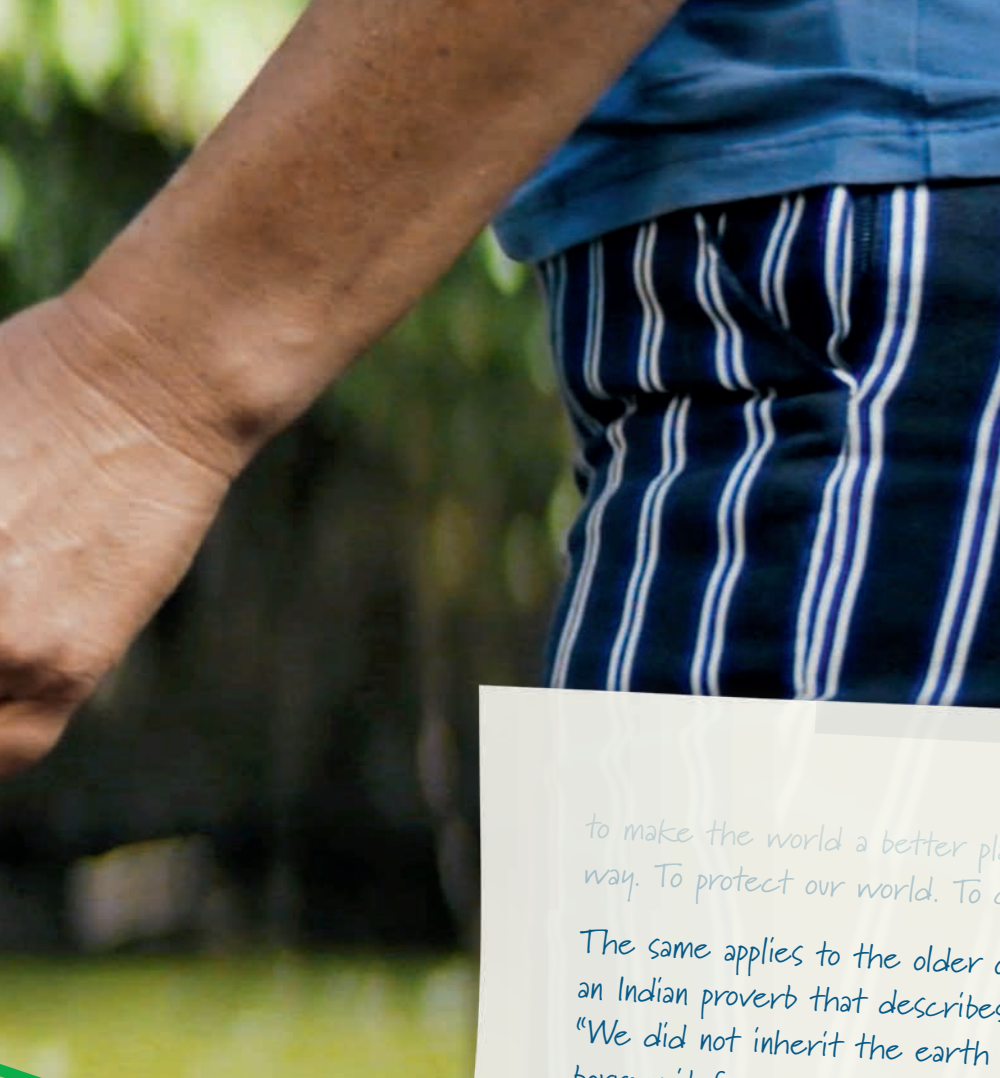 to make the world a better
way. To protect our world. To
The same applies to the older
an Indian proverb that describes
“We did not inherit the earth